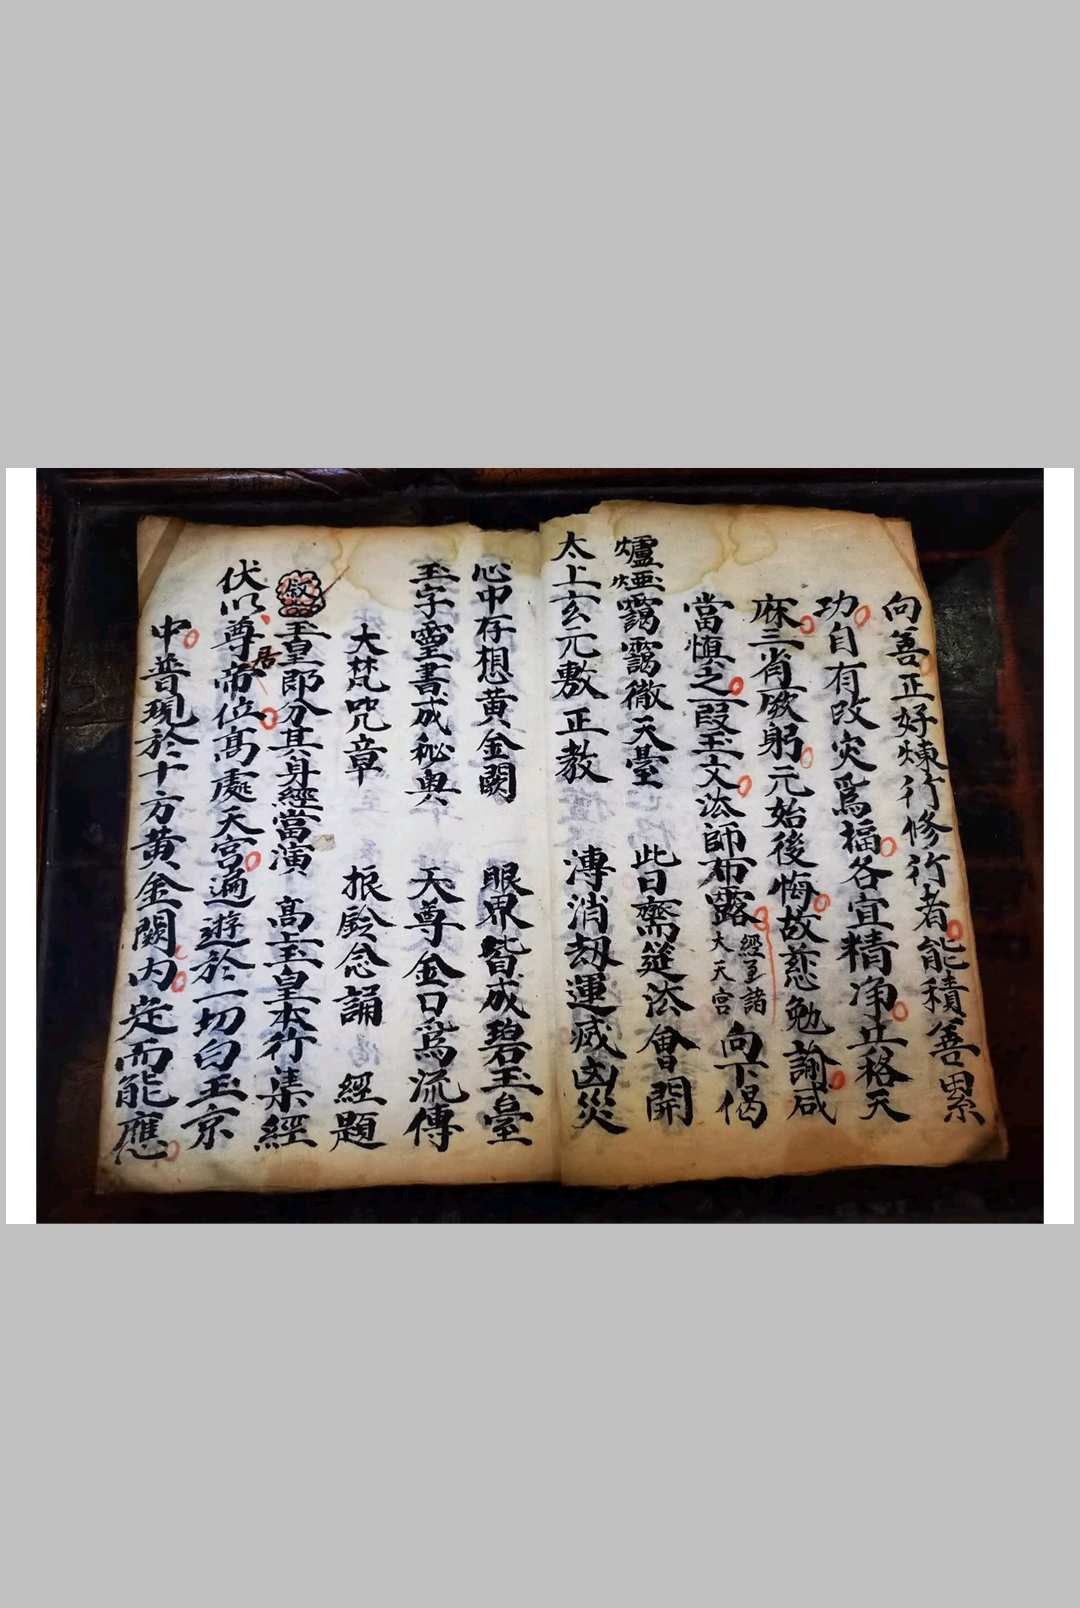 向善正好煉行修行者能積善累
功自有改灾爲福各宜精淨丘秴天
庥三肖厥躬元始後悔故慈勉諭咸
當慎之叚玉文法師布露經至諸大天宮向下偈
爐烟靄靄徹天臺 此日齋筵法會開
太上玄元敷正教 溥消劫運㓕凶災
心中存想黃金闕 眼界皆成碧玉臺
玉字靈書成秘典 天尊金口爲流傳
大梵咒章 振鈴念誦 經題
叙 玉皇郎分其身經當演 高上玉皇本行集經
伏以尊帝居位高處天宮遍遊於一切白玉京
中普現於十方黃金闕内定而能應